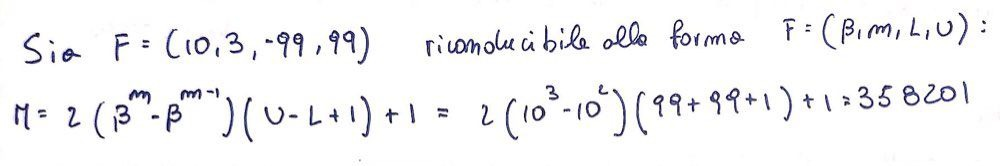 Sia F = (10, 3, -99, 99) riconducibile alla forma F = (β, m, L, U) :
M = 2 (β^m - β^{m-1}) (U - L + 1) + 1 = 2 (10^3 - 10^2) (99 + 99 + 1) + 1 = 358201